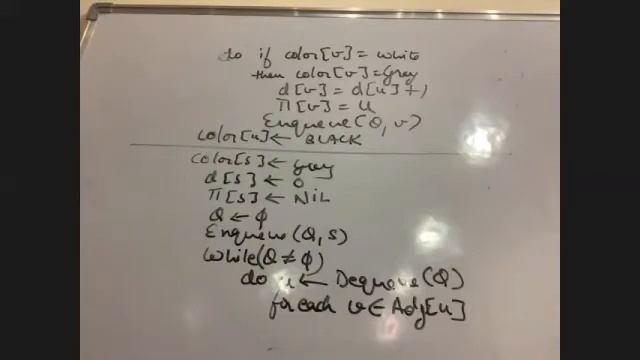 do if color[v] = white
then color[v] = Gray
d[v] = d[u] + 1
π[v] = u
Enqueue(Q, v)
color[u] ← BLACK
color[s] ← gray
d[s] ← 0
π[s] ← NIL
Q ← φ
Enqueue(Q, s)
while(Q ≠ φ)
do u ← Dequeue(Q)
for each v ∈ Adj[u]